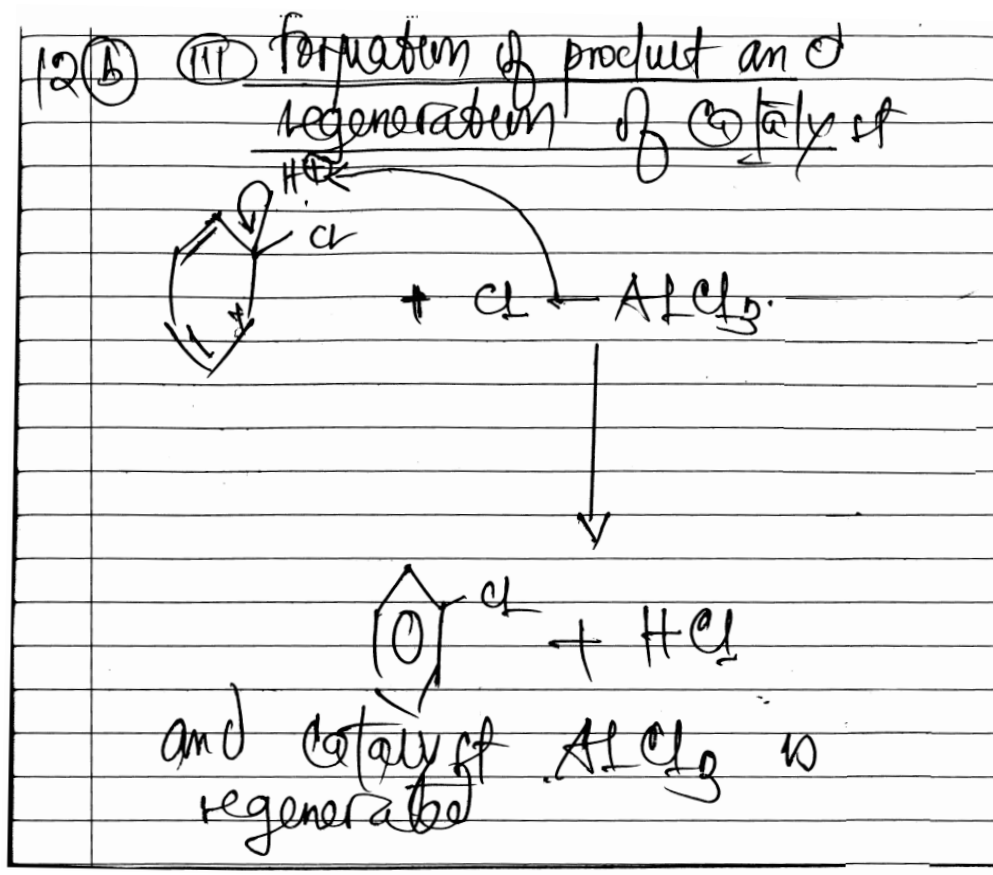 12 (b) (III) formation of product and
regeneration of Catalyst
H ⊕
Cl
+ Cl — AlCl3.
Cl
+ HCl
and Catalyst AlCl3 is
regenerated